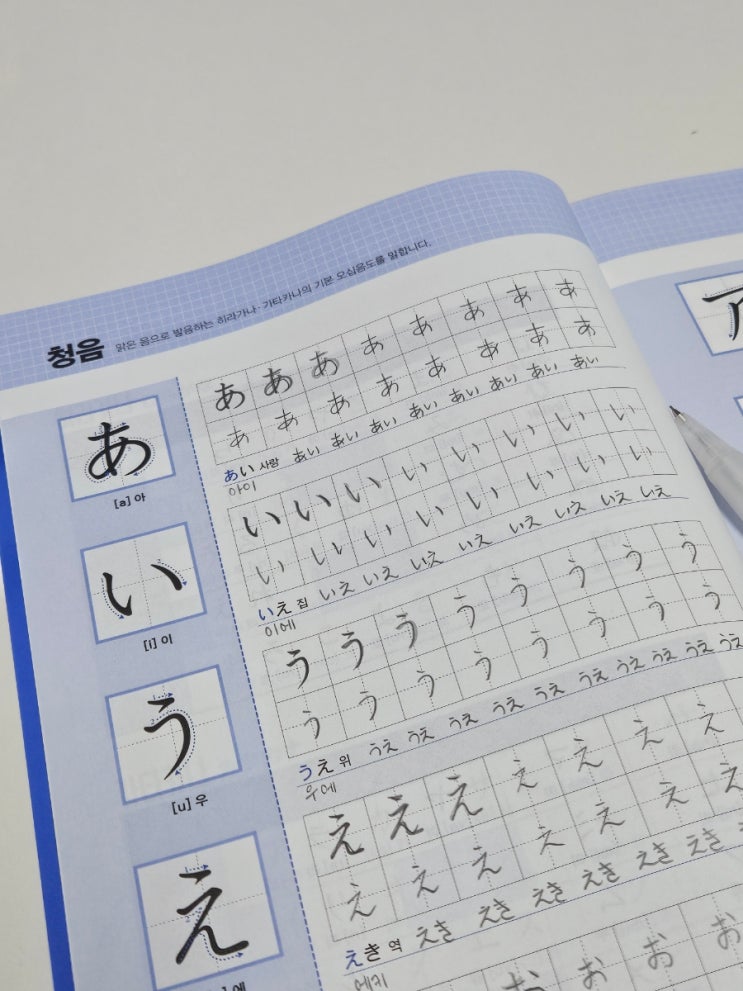 청음 맑은 음으로 발음하는 히라가나·가타카나의 기본 오십음도를 말합니다.
あ
[a] 아
あ あ あ あ あ あ あ あ
あ あ あ あ あ あ あ あ
あい 사랑 あい あい あい あい あい あい あい あい
아이
い
[i] 이
い い い い い い い い
い い い い い い い い
いえ 집 いえ いえ いえ いえ いえ いえ いえ いえ
이에
う
[u] 우
う う う う う う う う
う う う う う う う う
うえ 위 うえ うえ うえ うえ うえ うえ うえ うえ うえ うえ
우에
え
에
え え え え え え え
え え え え え え え
えき 역 えき えき えき えき えき えき
에키
お お お お